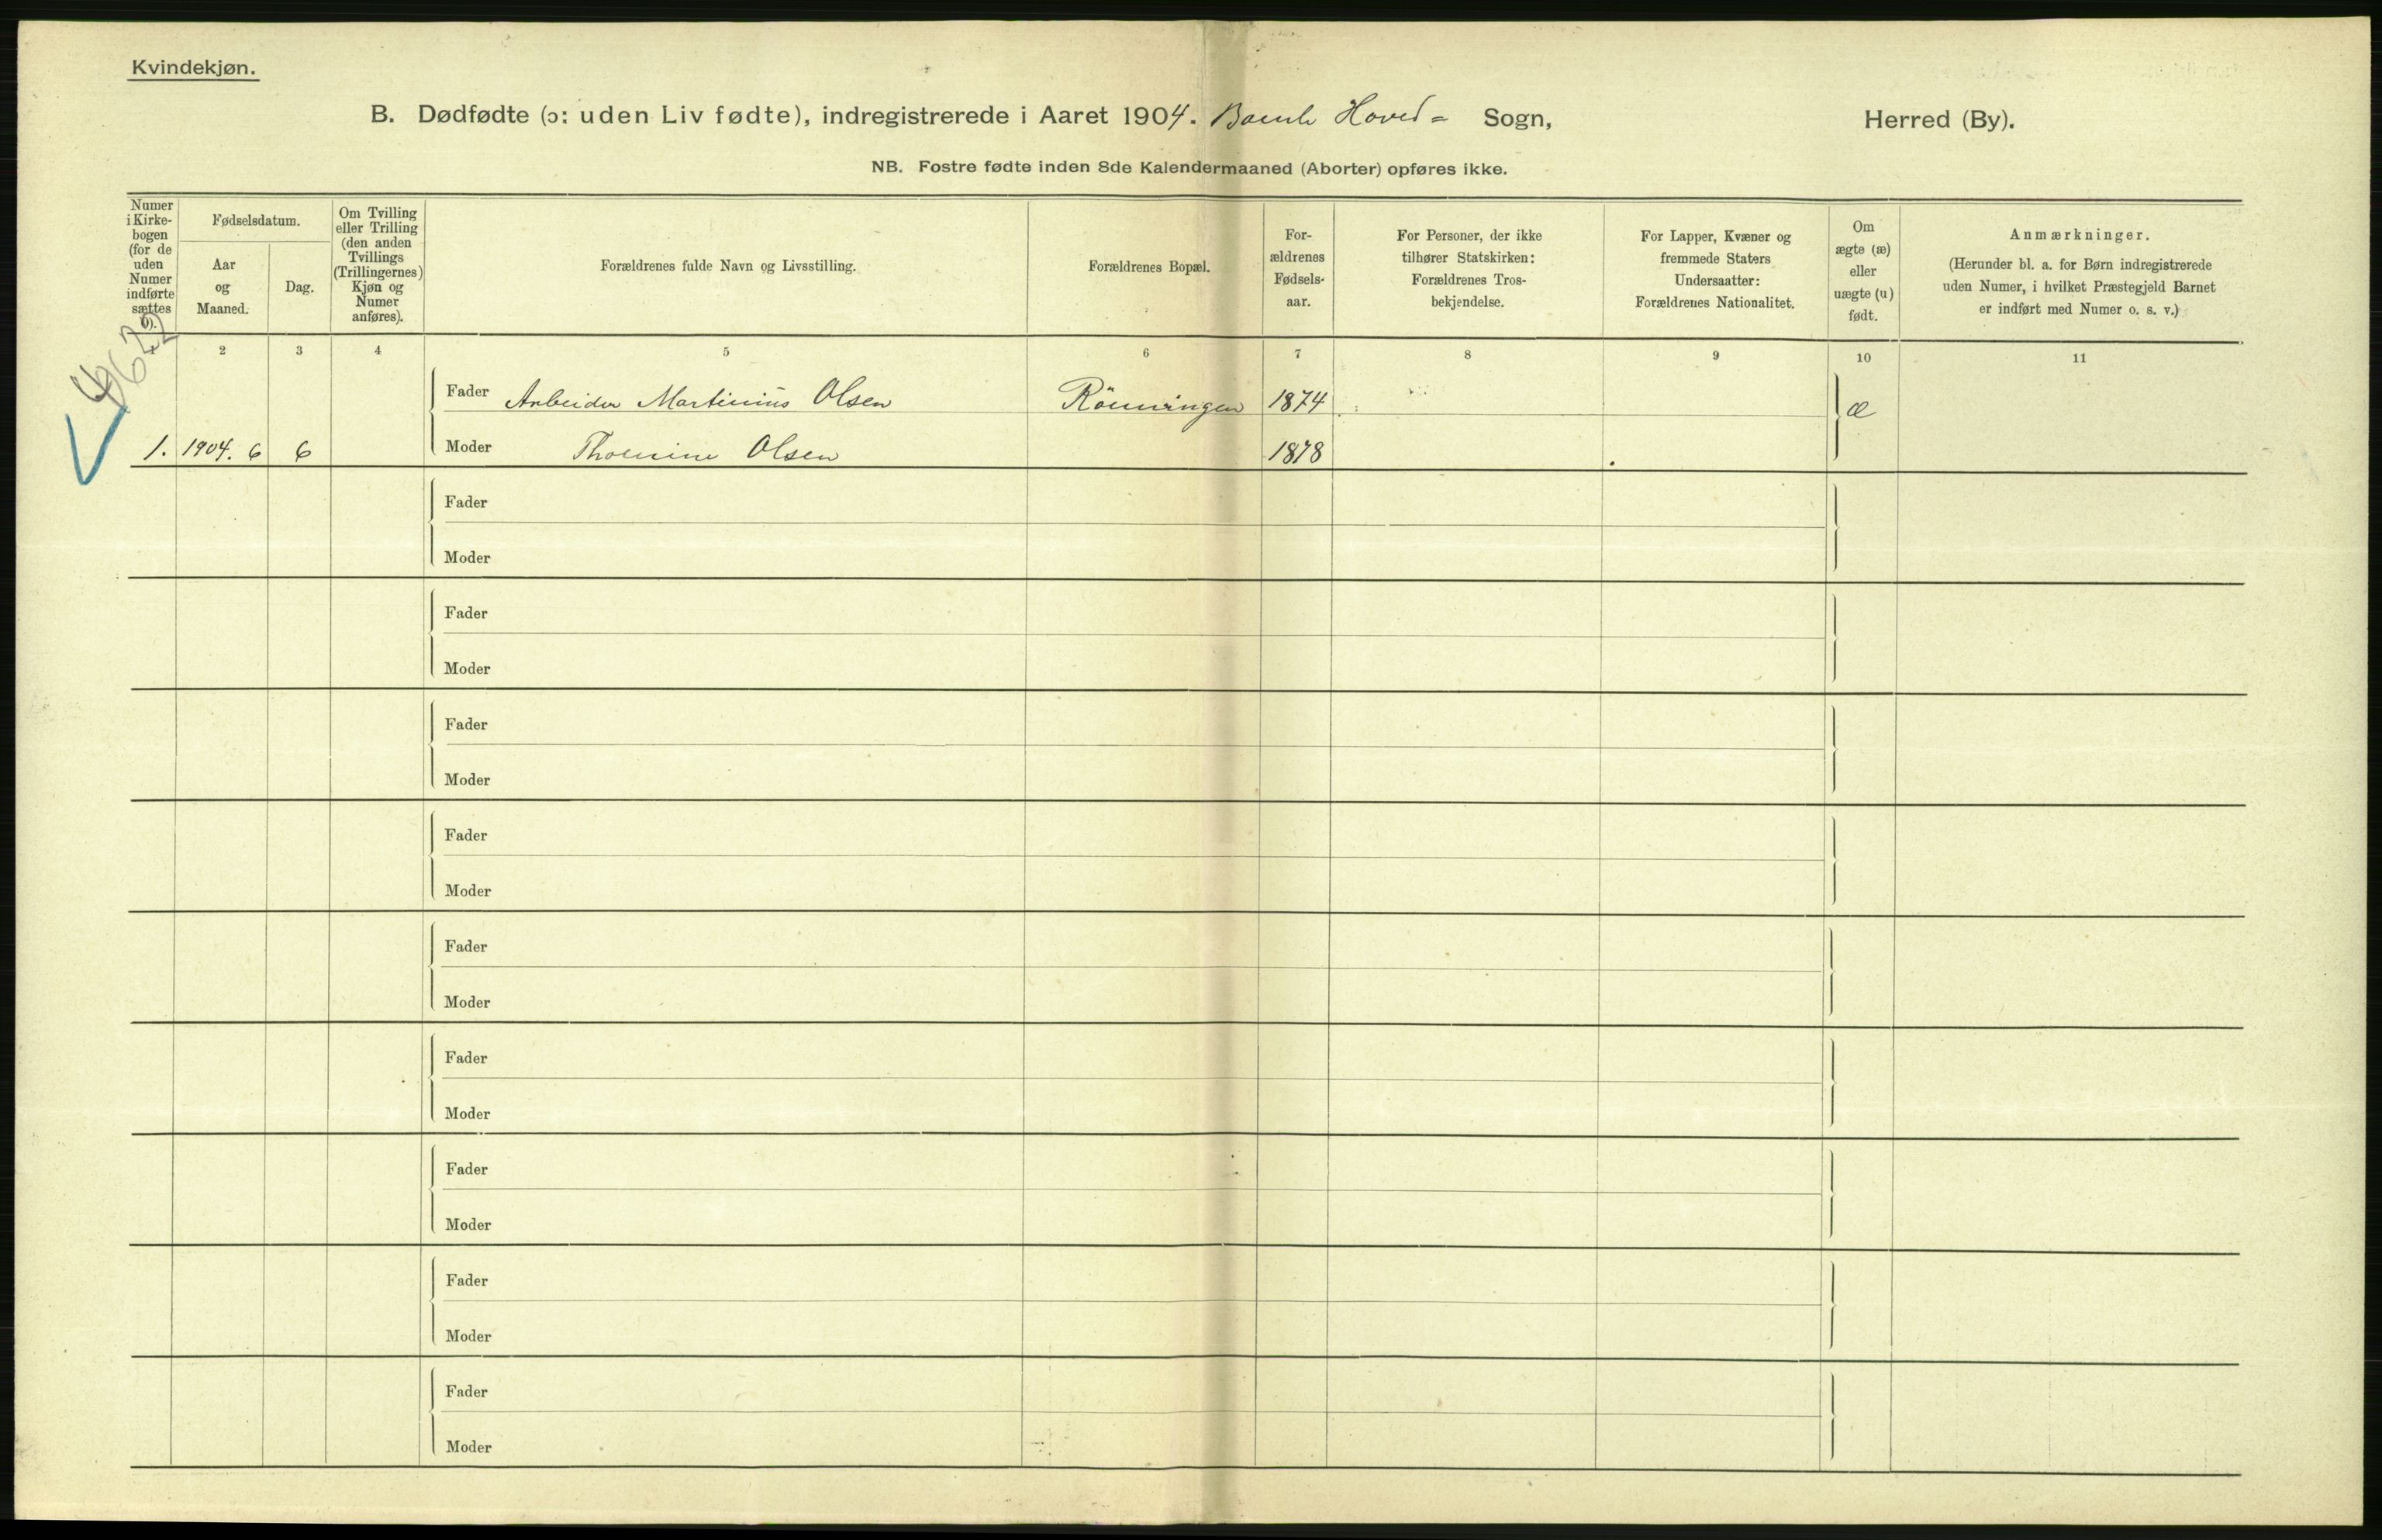 Kvindekjøn.
B. Dødfødte (ɔ: uden Liv fødte), indregistrerede i Aaret 1904. Bamle Hoved- Sogn, Herred (By).
NB. Fostre fødte inden 8de Kalendermaaned (Aborter) opføres ikke.
Numer
i Kirke-
bogen
(for de
uden
Numer
indførte
sættes
0).
Fødselsdatum.
Aar
og
Maaned.
Dag.
Om Tvilling
eller Trilling
(den anden
Tvillings
(Trillingernes)
Kjøn og
Numer
anføres).
Forældrenes fulde Navn og Livsstilling.
Forældrenes Bopæl.
For-
ældrenes
Fødsels-
aar.
For Personer, der ikke
tilhører Statskirken:
Forældrenes Tros-
bekjendelse.
For Lapper, Kvæner og
fremmede Staters
Undersaatter:
Forældrenes Nationalitet.
Om
ægte (æ)
eller
uægte (u)
født.
Anmærkninger.
(Herunder bl. a. for Børn indregistrerede
uden Numer, i hvilket Præstegjeld Barnet
er indført med Numer o. s. v.)
2 3 4 5 6 7 8 9 10 11
Fader Arbeider Martinius Olsen Rönningen 1874 æ
1. 1904. 6 6 Moder Thomine Olsen 1878
Fader
Moder
Fader
Moder
Fader
Moder
Fader
Moder
Fader
Moder
Fader
Moder
Fader
Moder
Fader
Moder
Fader
Moder